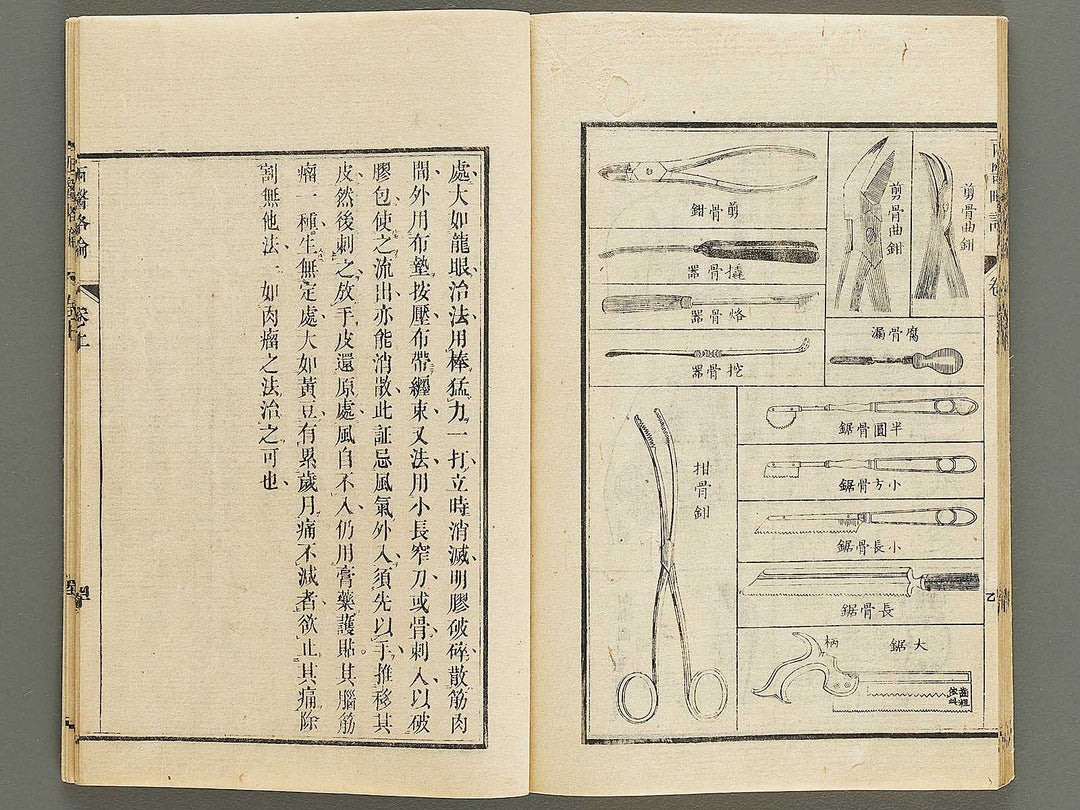 剪骨曲鉗
剪骨曲鉗
剪骨鉗
撬骨器
烙骨器
挖骨器
腐骨漏
半圓骨鋸
小方骨鋸
小長骨鋸
長骨鋸
大鋸
柄
拑骨鉗
乙
處大如龍眼治法用棒猛力一打立時消滅明膠破碎散筋肉
間外用布墊按壓布帶纏束又法用小長窄刀或骨刺入以破
膠包使之流出亦能消散此証忌風氣外入須先以手推移其
皮然後刺之放手皮還原處風自不入仍用膏藥護貼其腦筋
瘤一種生無定處大如黃豆有累歲月痛不減者欲止其痛除
割無他法一如肉瘤之法治之可也
西醫略論